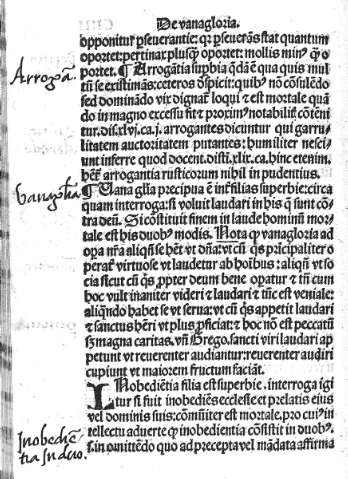 De vanagloria.
opponitur ꝑseuerantie: qꝛ ꝑseuerãs stat quantum
oportet: pertinax plusq̃ oportet: mollis minꝰ q̃ o
portet. ¶ Arrogãtia supbia q̃dã ẽ qua quis mul
Arrogã.
tũ se existimãs: ceteros dispicit: quibꝰ nõ cõsulẽdo
sed dominãdo vix dignat̃ loqui ⁊ est mortale quã
do in magno excessu fit ⁊ proximꝰ notabilit̃ cõtẽni
tur. di. xlvj. ca. j. arrogantes dicuntur qui garru⸗
litatem auctoritatem putantes: humiliter nesci⸗
unt inferre quod docent. disti. xlix. ca. hinc etenim.
heꝛ̃ arrogantia rusticorum nihil in pudentius.
¶ Uana gl̃ia precipua ẽ int̃ filias superbie: circa
quam interroga: si voluit laudari in his q̃ sunt cõ
tra deũ. Si cõstituit finem in laude hominũ mor⸗
tale est his duobꝰ modis. Nota ꝙ vanagloria ad
oꝑa nr̃a aliqñ se hẽt vt dñã: vt cũ q̃s ꝑncipaliter o
perat̃ virtuose vt laudetur ab hoĩbus: aliqñ vt so
cia sicut cũ q̃s ꝓpter deum bene oꝑatur ⁊ tñ cum
hoc vult inaniter videri ⁊ laudari ⁊ tũc est veniale:
aliqñdo habet se vt serua: vt cũ q̃s appetit laudari
⁊ sanctus hẽri vt plus ꝓficiat: ⁊ hoc nõ est peccatũ
sꝫ magna caritas. vñ Grego. sancti viri laudari ap
petunt vt reuerenter audiantur: reuerenter audiri
cupiunt vt maiorem fructum faciãt.
INobediẽtia filia est superbie. interroga igi
tur si fuit inobediẽs ecclesie et prelatis eius
vel dominis suis: cõmũiter est mortale. pro cuiꝰ in
tellectu aduerte ꝙ inobedientia cõsistit in duobꝰ.
Inobediẽ⸗
tia In duo.
s. in omittẽdo quo ad precepta vel mãdata affirma